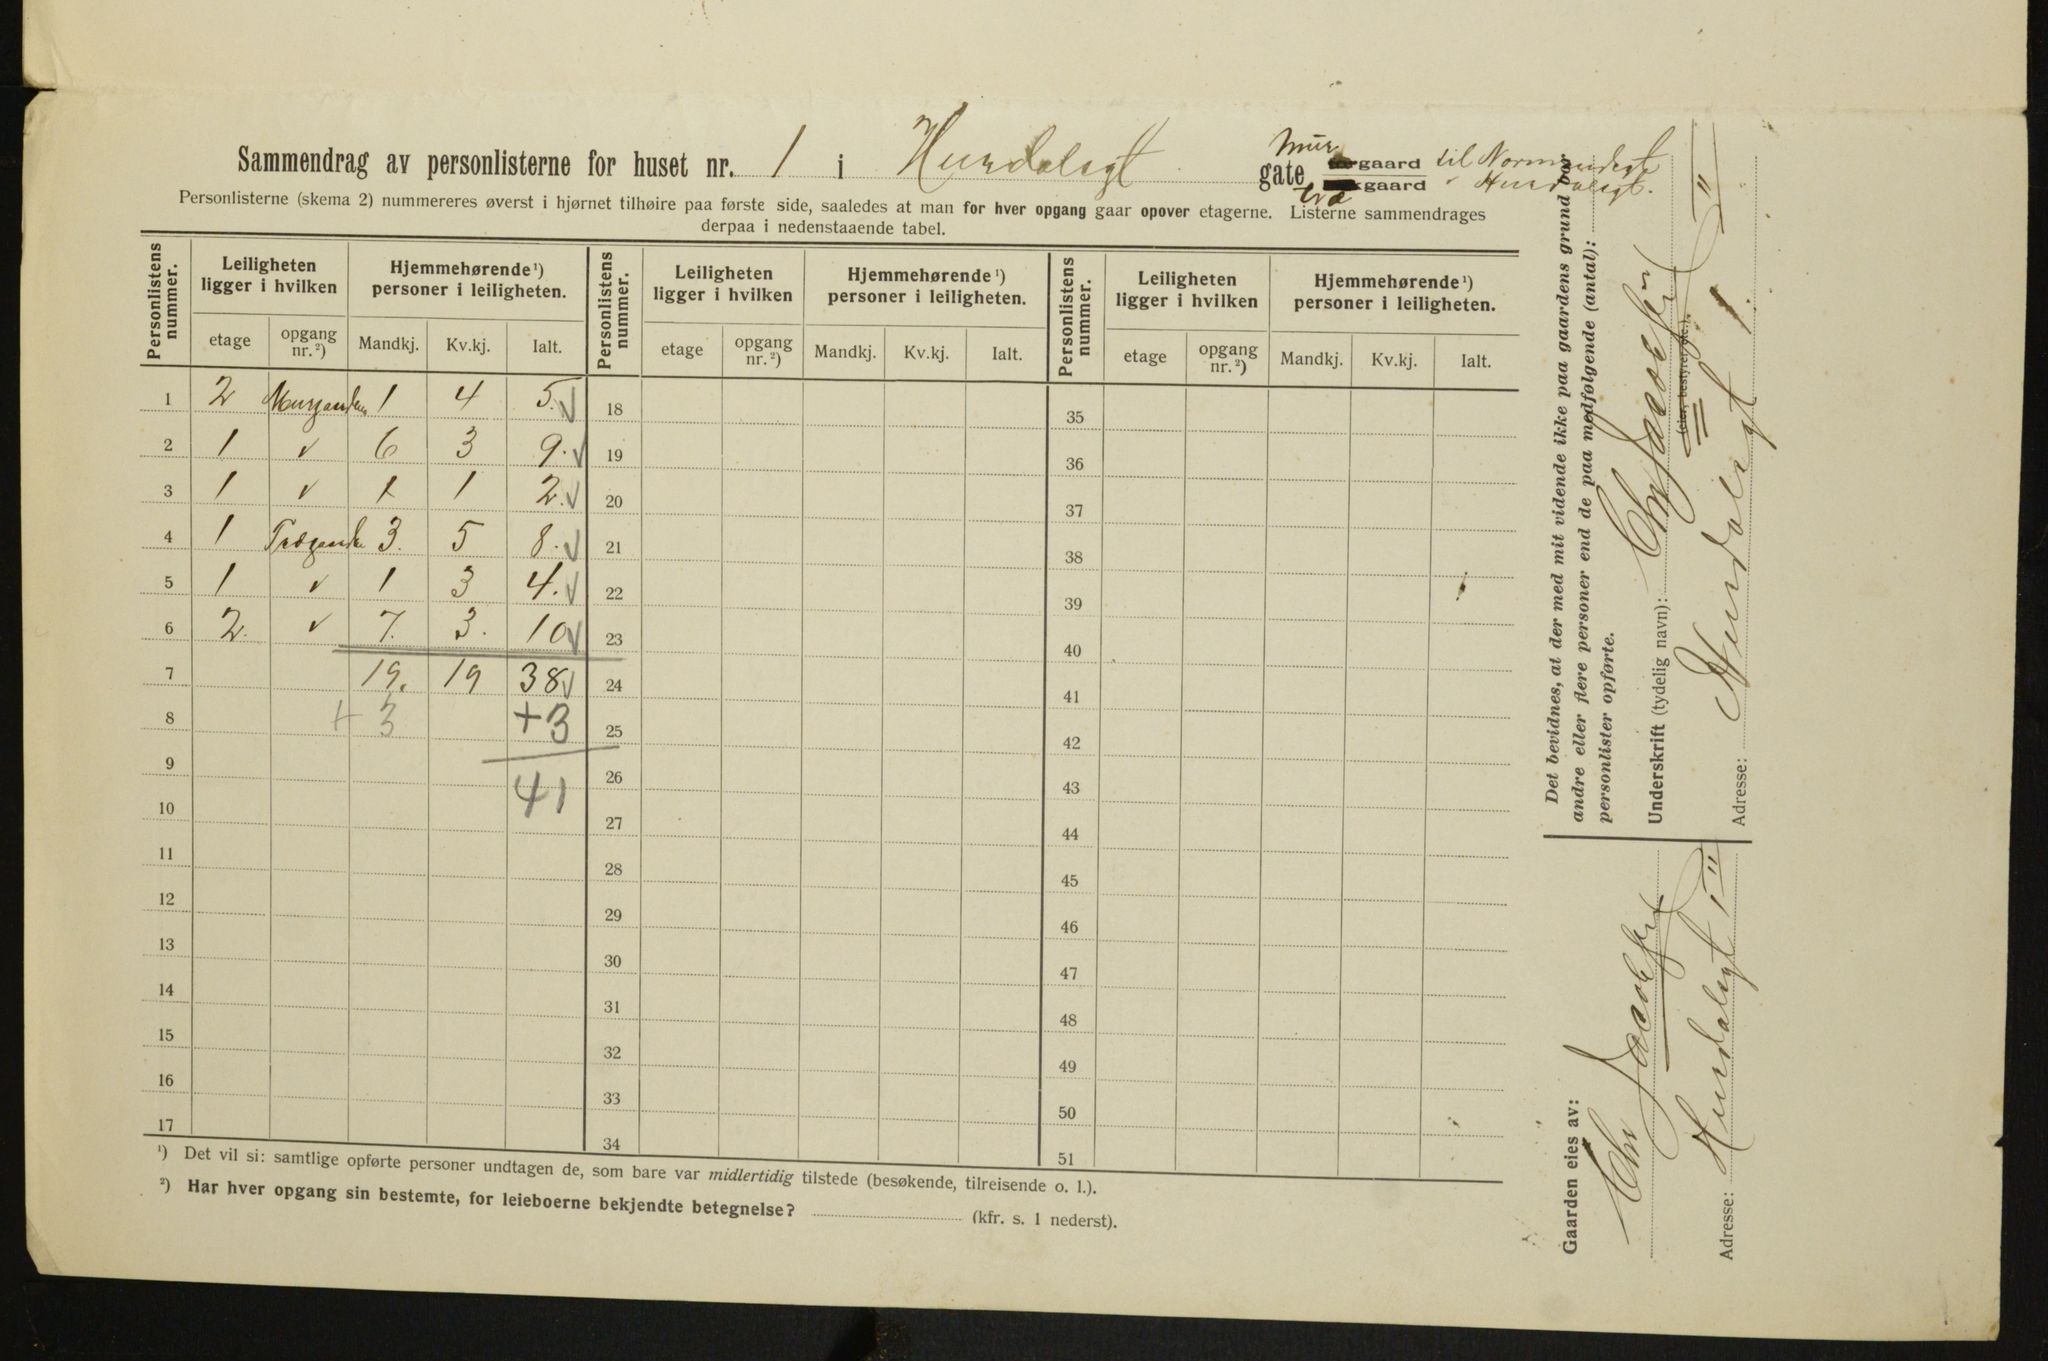 Sammendrag av personlisterne for huset nr. 1 i Hurdalsgt gate Mur gaard til Normandsgt.
Træ gaard " Hurdalsgt.
Personlisterne (skema 2) nummereres øverst i hjørnet tilhøire paa første side, saaledes at man for hver opgang gaar opover etagerne. Listerne sammendrages
derpaa i nedenstaaende tabel.
Personlistens nummer. Leiligheten ligger i hvilken Hjemmehørende ¹) personer i leiligheten. Personlistens nummer. Leiligheten ligger i hvilken Hjemmehørende ¹) personer i leiligheten. Personlistens nummer. Leiligheten ligger i hvilken Hjemmehørende ¹) personer i leiligheten.
etage opgang nr. ²) Mandkj. Kv.kj. Ialt. etage opgang nr. ²) Mandkj. Kv.kj. Ialt. etage opgang nr. ²) Mandkj. Kv.kj. Ialt.
1 2 Murgaarden 1 4 5. 18 35
2 1 " 6 3 9. 19 36
3 1 " 1 1 2. 20 37
4 1 Trægaarden 3. 5 8. 21 38
5 1 " 1 3 4. 22 39
6 2. " 7. 3. 10 23 40
7 19. 19 38 24 41
8 + 3 +3 25 42
9 41 26 43
10 27 44
11 28 45
12 29 46
13 30 47
14 31 48
15 32 49
16 33 50
17 34 51
¹) Det vil si: samtlige opførte personer undtagen de, som bare var midlertidig tilstede (besøkende, tilreisende o. l.).
²) Har hver opgang sin bestemte, for leieboerne bekjendte betegnelse? (kfr. s. 1 nederst).
Det bevidnes, at der med mit vidende ikke paa gaardens grund bor
andre eller flere personer end de paa medfølgende (antal):
personlister opførte.
Underskrift (tydelig navn): Chr Jacobsen
(eier, bestyrer etc.).
Adresse: Hurdalsgt 1
Gaarden eies av: Chr Jacobsen
Adresse: Hurdalsgt 1